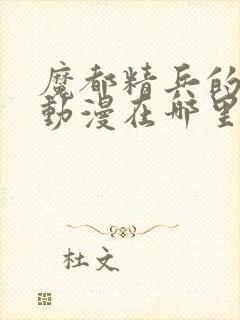 魔都精兵的
動漫在哪里
杜文